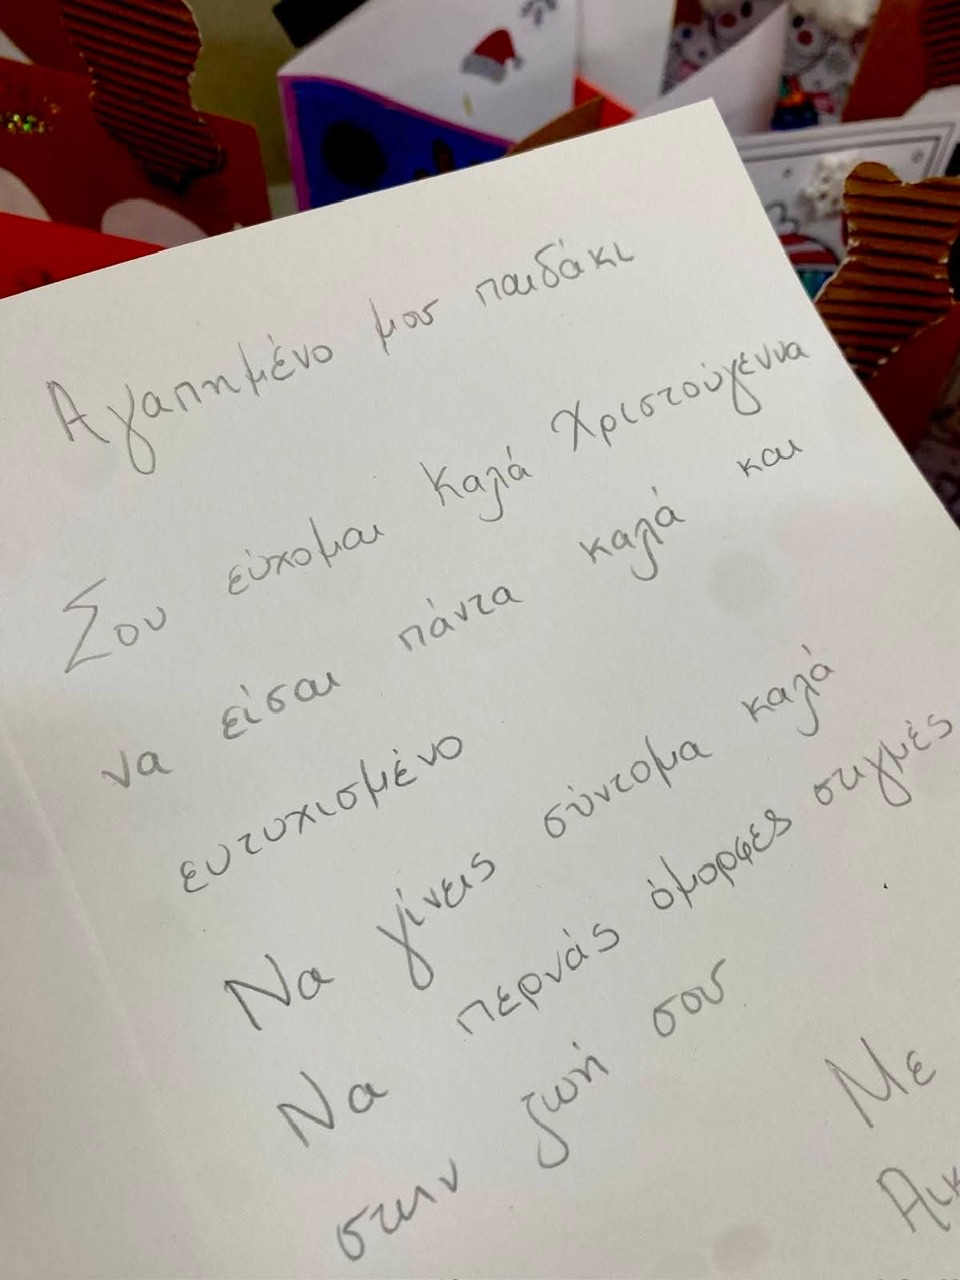 Αγαπημένο μου παιδάκι
Σου εύχομαι Καλά Χριστούγεννα
να είσαι πάντα καλά και
ευτυχισμένο
Να γίνεις σύντομα καλά
Να περνάς όμορφες στιγμές
στην ζωή σου.
Με